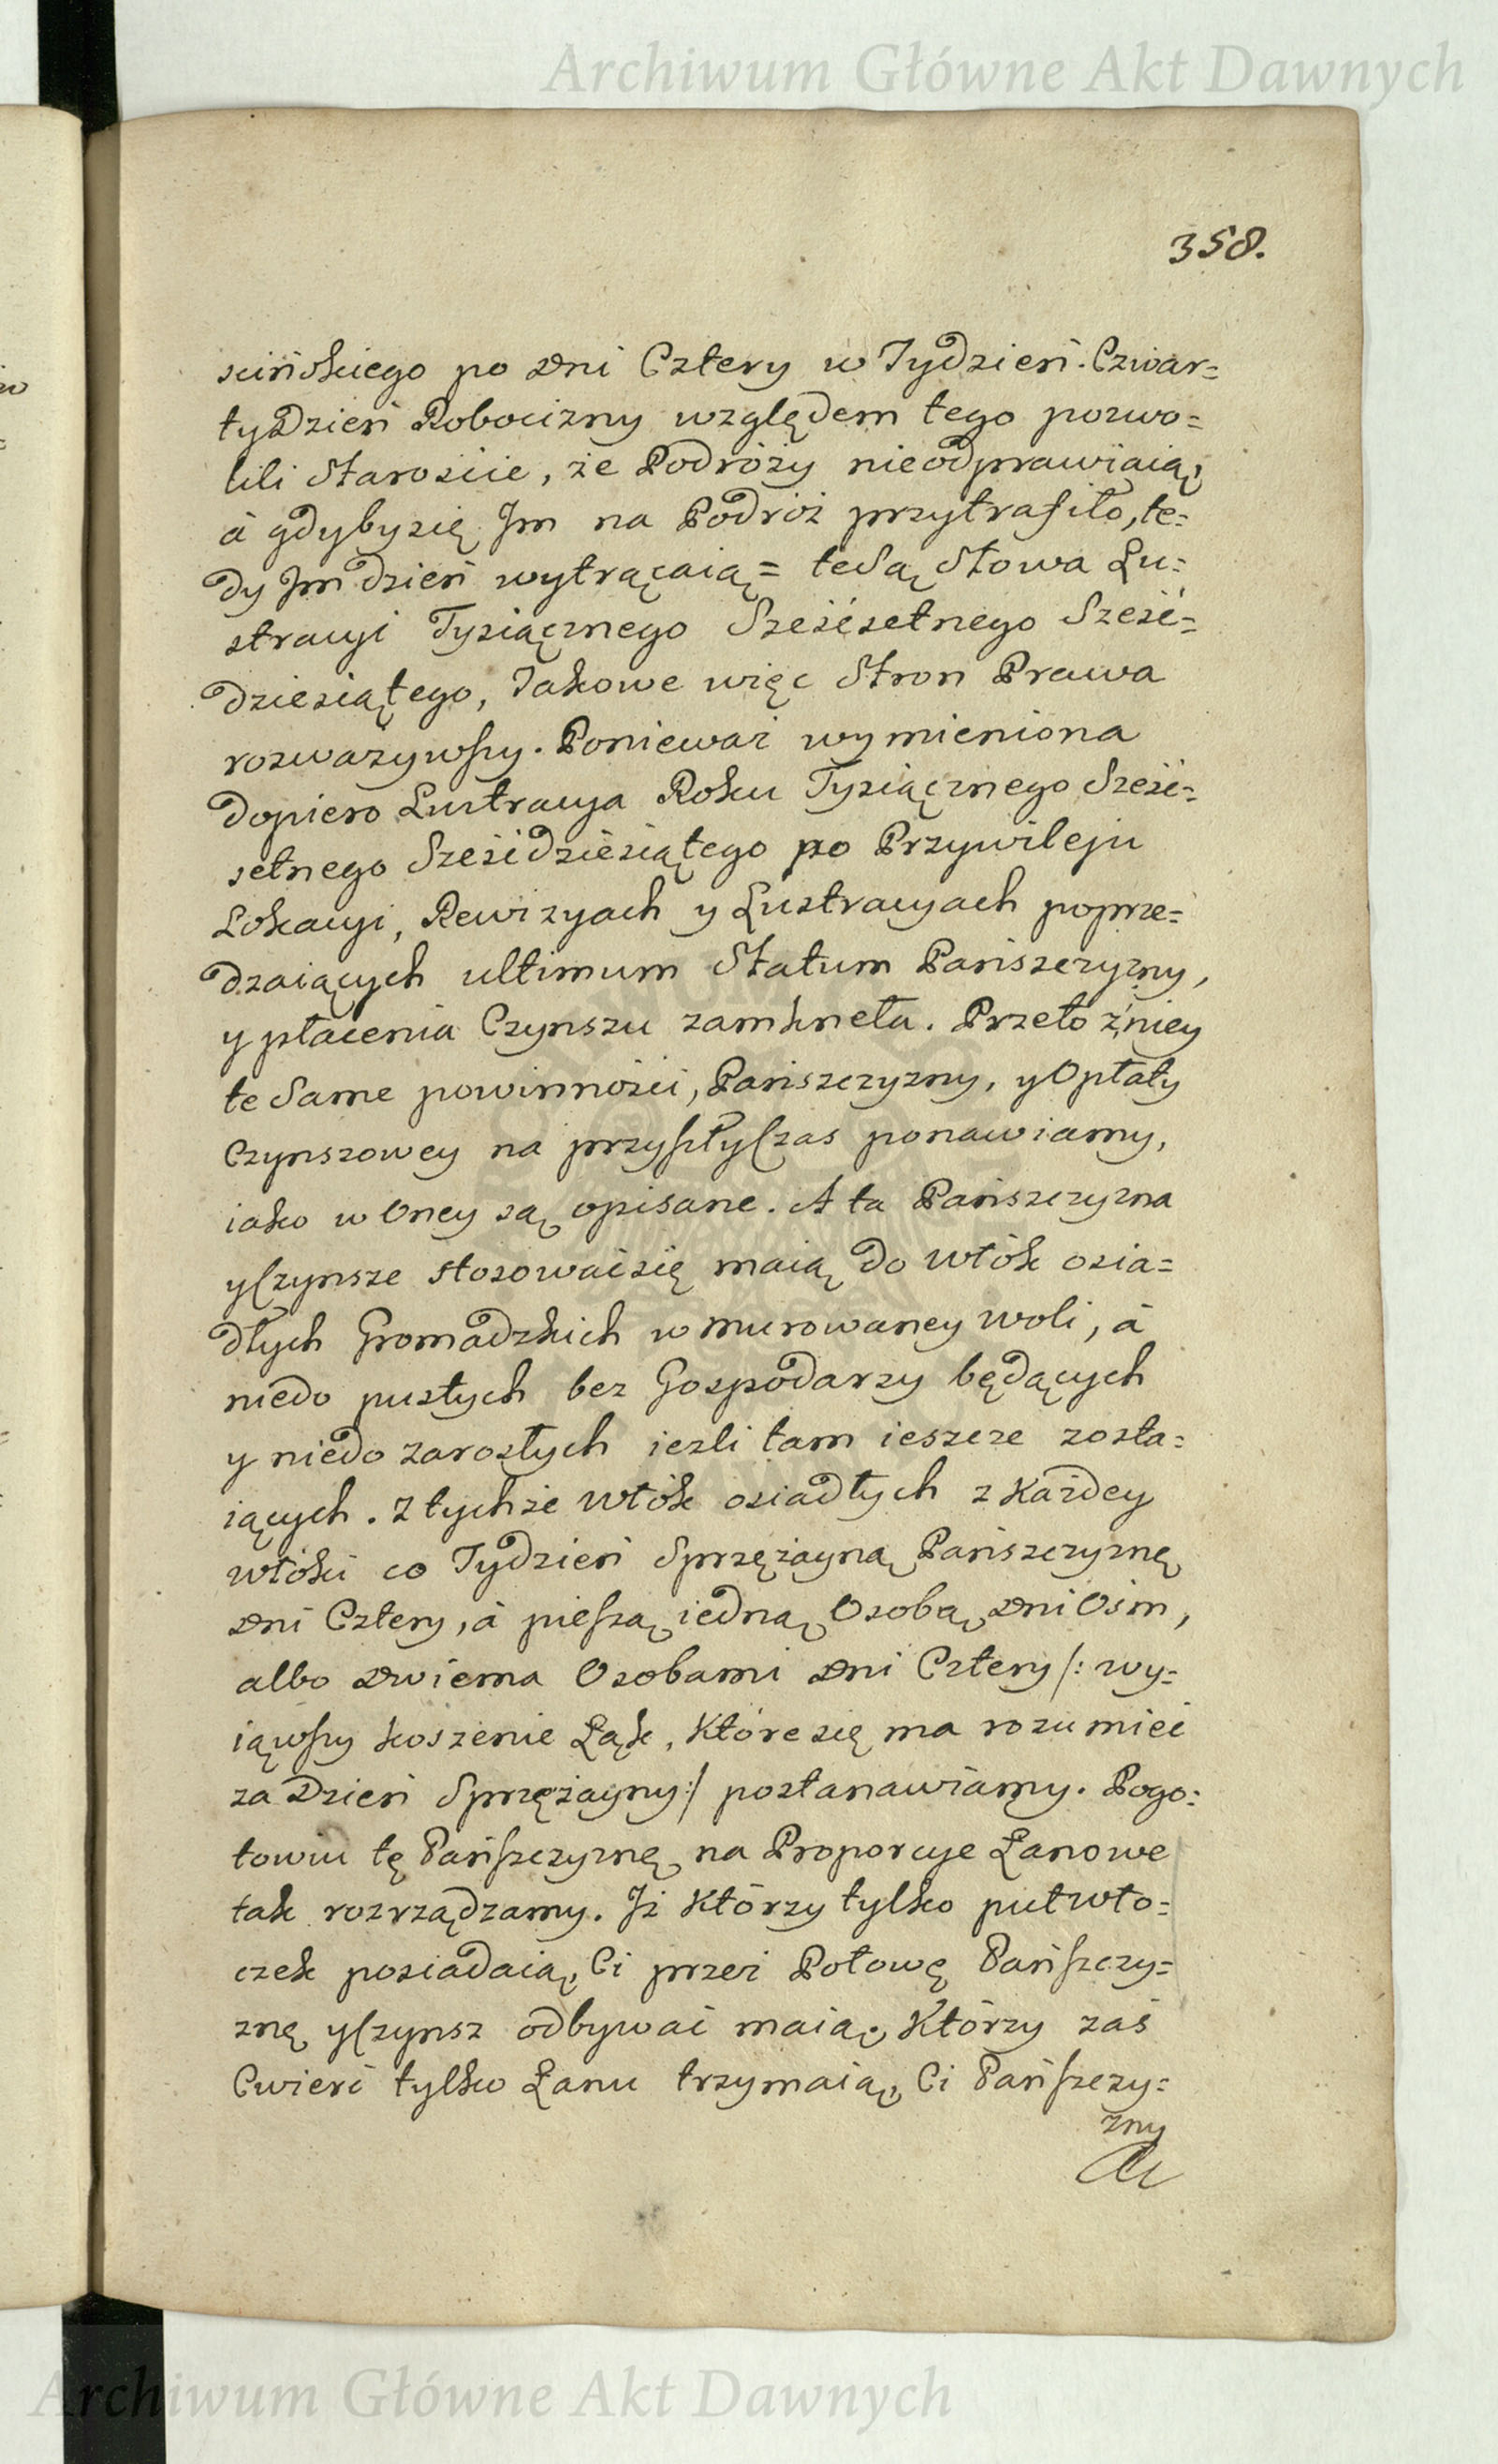 Archiwum Główne Akt Dawnych
358.
scińskiego po Dni Cztery w Tydzień. Czwar=
tyDzień Robocizny względem tego pozwo=
lili Staroscie, że Podróży nieodprawiaią,
á gdybysię Jm na Podróż przytrafiło, te=
dy Jm dzień wytrącaią = teSą Słowa Lu=
stracyi Tysiącznego Sześćsetnego Sześć=
dziesiątego, Jakowe więc Stron Prawa
rozważywszy. Ponieważ wymieniona
dopiero Lustracya Roku Tysiącznego Sześć=
setnego Sześćdziesiątego po Przywileju
Lokacyi, Rewizyach y Lustracyach poprze=
dzaiących ultimum Statum Pańszczyzny,
y płacenia Czynszu zamkneła. Przeto źniey
te Same powinności, Pańszczyzny, y Opłaty
Czynszowey na przyszłyCzas ponawiamy,
iako w Oney są opisane. A ta Pańszczyzna
yCzynsze stosowaćsię maią do włók osia=
dłych Gromadzkich w murowaney woli, á
niedo pustych bez Gospodarzy będących
y niedo zarosłych iezli tam ieszcze zosta=
iących. Z tychże włók osiadłych z Każdey
włóki co Tydzień Sprzężayną Pańszczyznę
Dni Cztery, á pieszą iedną Osobą Dni Ośm,
albo Dwiema Osobami Dni Cztery /: wy=
iąwszy koszenie Łąk, Które się ma rozumieć
za Dzień Sprzężayny:/ postanawiamy. Pogo=
towiu tę Pańszczyznę na Proporcye Łanowe
tak rozrządzamy. Jż Którzy tylko pułwło=
czek posiadaią, Ci przez Połowę Pańszczy=
znę yCzynsz odbywać maią, Którzy zaś
Cwierć tylko Łanu trzymaią, Ci Pańszczy=
zny
Archiwum Główne Akt Dawnych